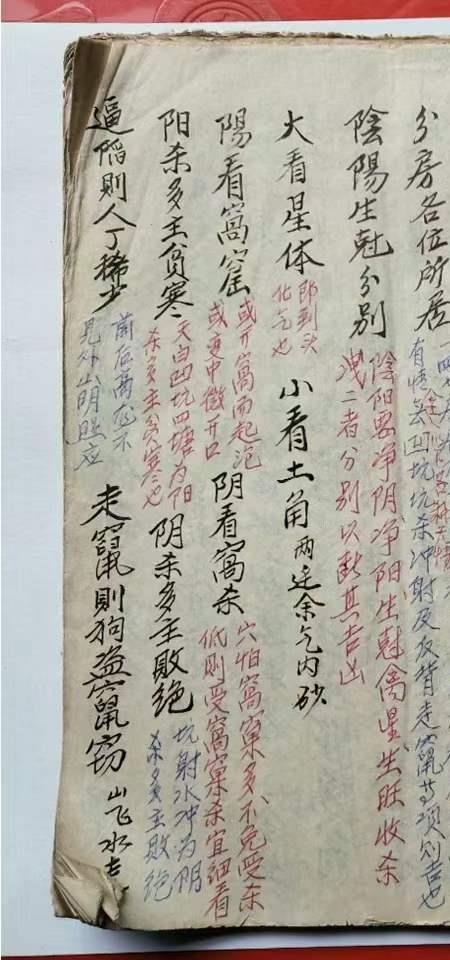 分房各位所居
有情篆凹坑坑杀冲射及反背走竄等项则吉也
陰陽生尅分别
陰阳要净阴净阳生尅禽星生旺收杀
洩二者分别以断其吉凶
大看星体
即到头
化气也
小看土角
两边余气内砂
陽看窩窑
或开窩而起泡
或变中微开口
阴看窩杀
穴怕窩窠多不免受杀
低则受窩窠杀宜细看
阳杀多主贫寒
天白凹坑四塘为阳
杀多主贫寒也
阴杀多主敗绝
坑射水冲为阴
杀多主敗绝
逼陷則人丁稀少
前后高
见外山明照应
走竄則狗盗竄窃
山飞水走